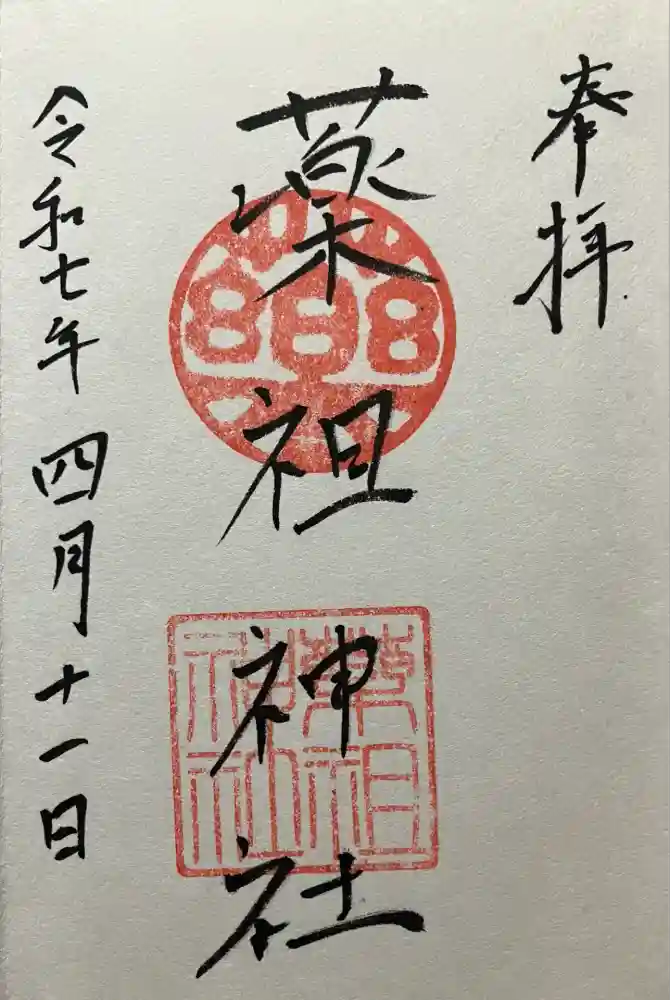 奉拝
薬祖神社
薬
薬祖神社
令和七年四月十一日